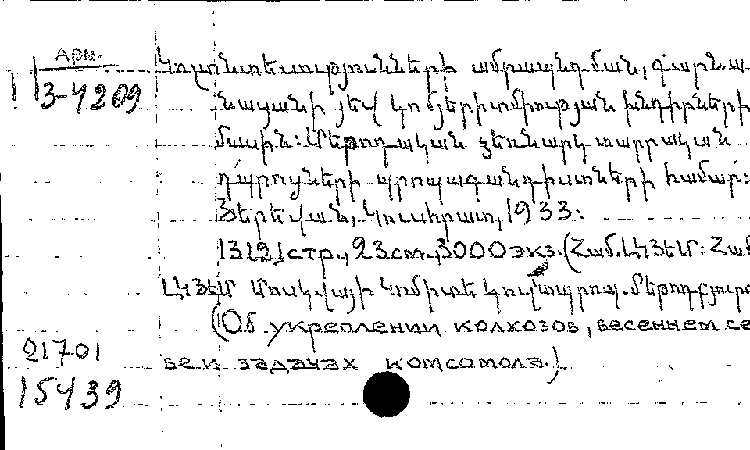 Арм.
3-4209
Կոլտնտեսությունների ամրապնդման, գարնա-
նացանի յեվ կոմյերիտմիության խնդիրների
մասին: Մեթոդական ձեռնարկ տարրական
դպրոցների պրոպագանդիստների համար:
Յերեվան, Կուսհրատ, 1933:
131[2]стр., 23см., 3000экз. (Համ.ԼԿՅԵՄ: Համ
ԼԿՅԵՄ Մոսկվայի Կոմիտե Կուլտպրոպ. մեթոդբյուրո
(Об укреплении колхозов, весеннем се
ве и задачах комсомола.)
21701
15439